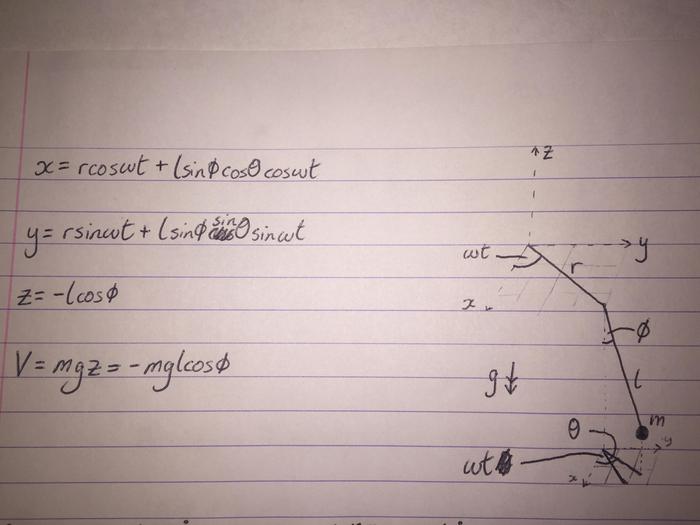 x = rcosωt + lsinϕcosθcosωt
y = rsinωt + lsinϕsinθsinωt
z = -lcosϕ
V = mgz = -mglcosϕ
z
y
ωt
r
x
ϕ
g
l
m
θ
y
ωt
x